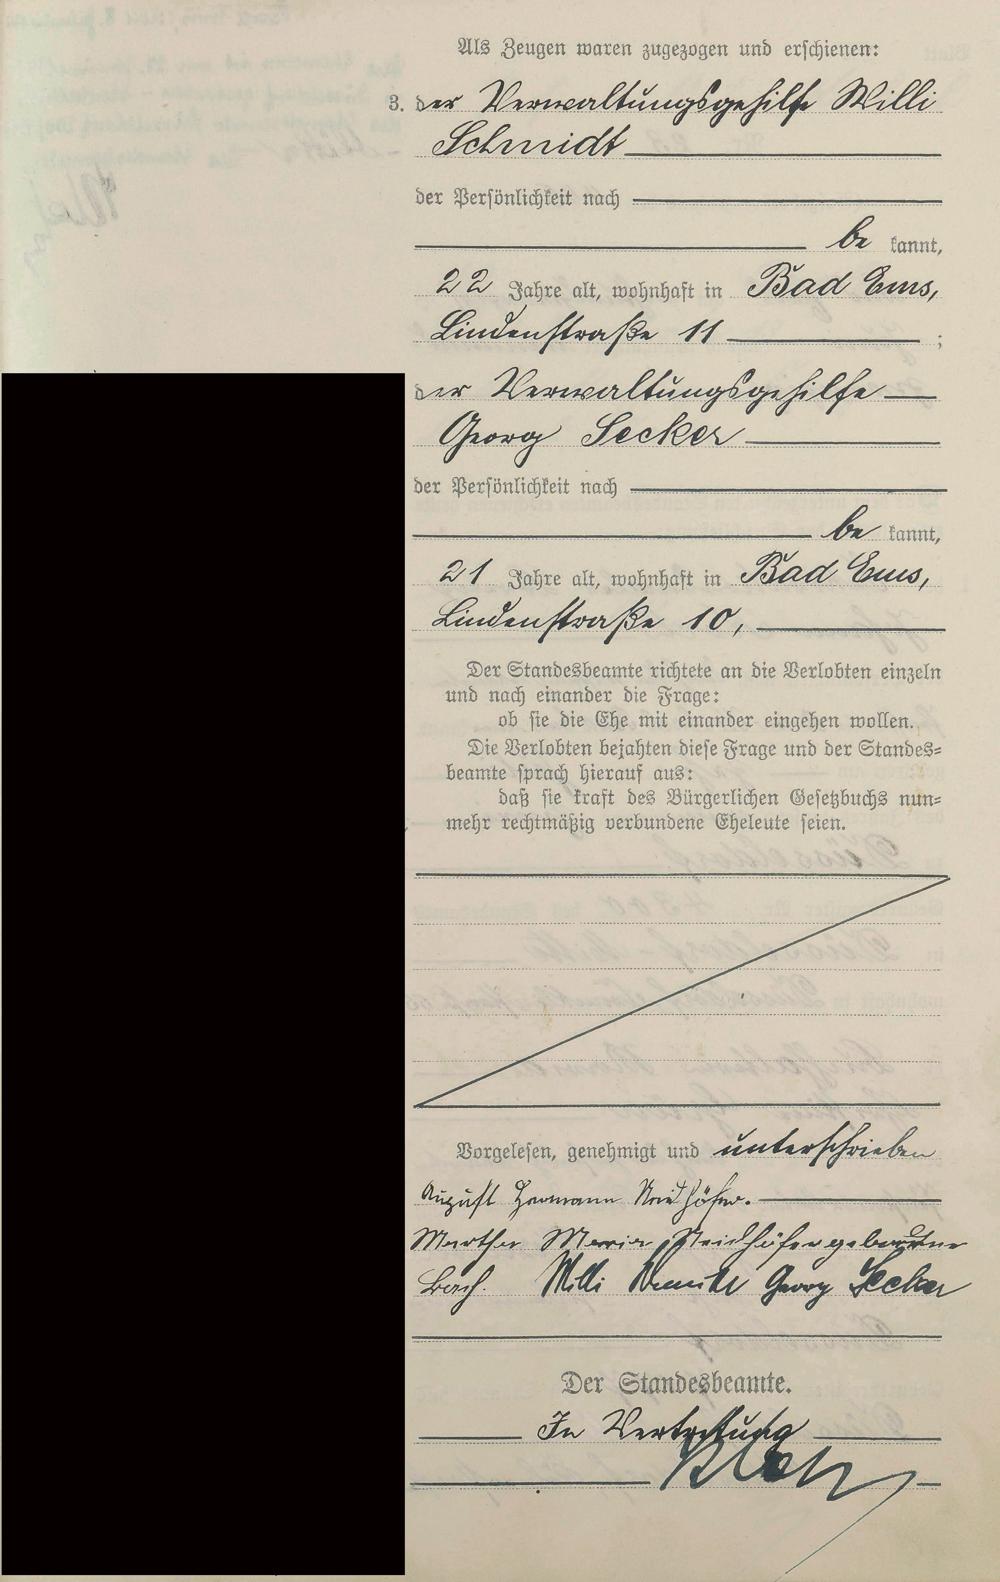 Als Zeugen waren zugezogen und erschienen:
3. der Verwaltungsgehilfe Willi
Schmidt
der Persönlichkeit nach
be kannt,
22 Jahre alt, wohnhaft in Bad Ems,
Lindenstraße 11 ;
der Verwaltungsgehilfe
Georg Secker
der Persönlichkeit nach
be kannt,
21 Jahre alt, wohnhaft in Bad Ems,
Lindenstraße 10,
Der Standesbeamte richtete an die Verlobten einzeln
und nach einander die Frage:
ob sie die Ehe mit einander eingehen wollen.
Die Verlobten bejahten diese Frage und der Standes=
beamte sprach hierauf aus:
daß sie kraft des Bürgerlichen Gesetzbuchs nun=
mehr rechtmäßig verbundene Eheleute seien.
Vorgelesen, genehmigt und unterschrieben
August Hermann Neidhöfer.
Martha Maria Neidhöfer geborene
Bach. Willi Georg Secker
Der Standesbeamte.
In Vertretung